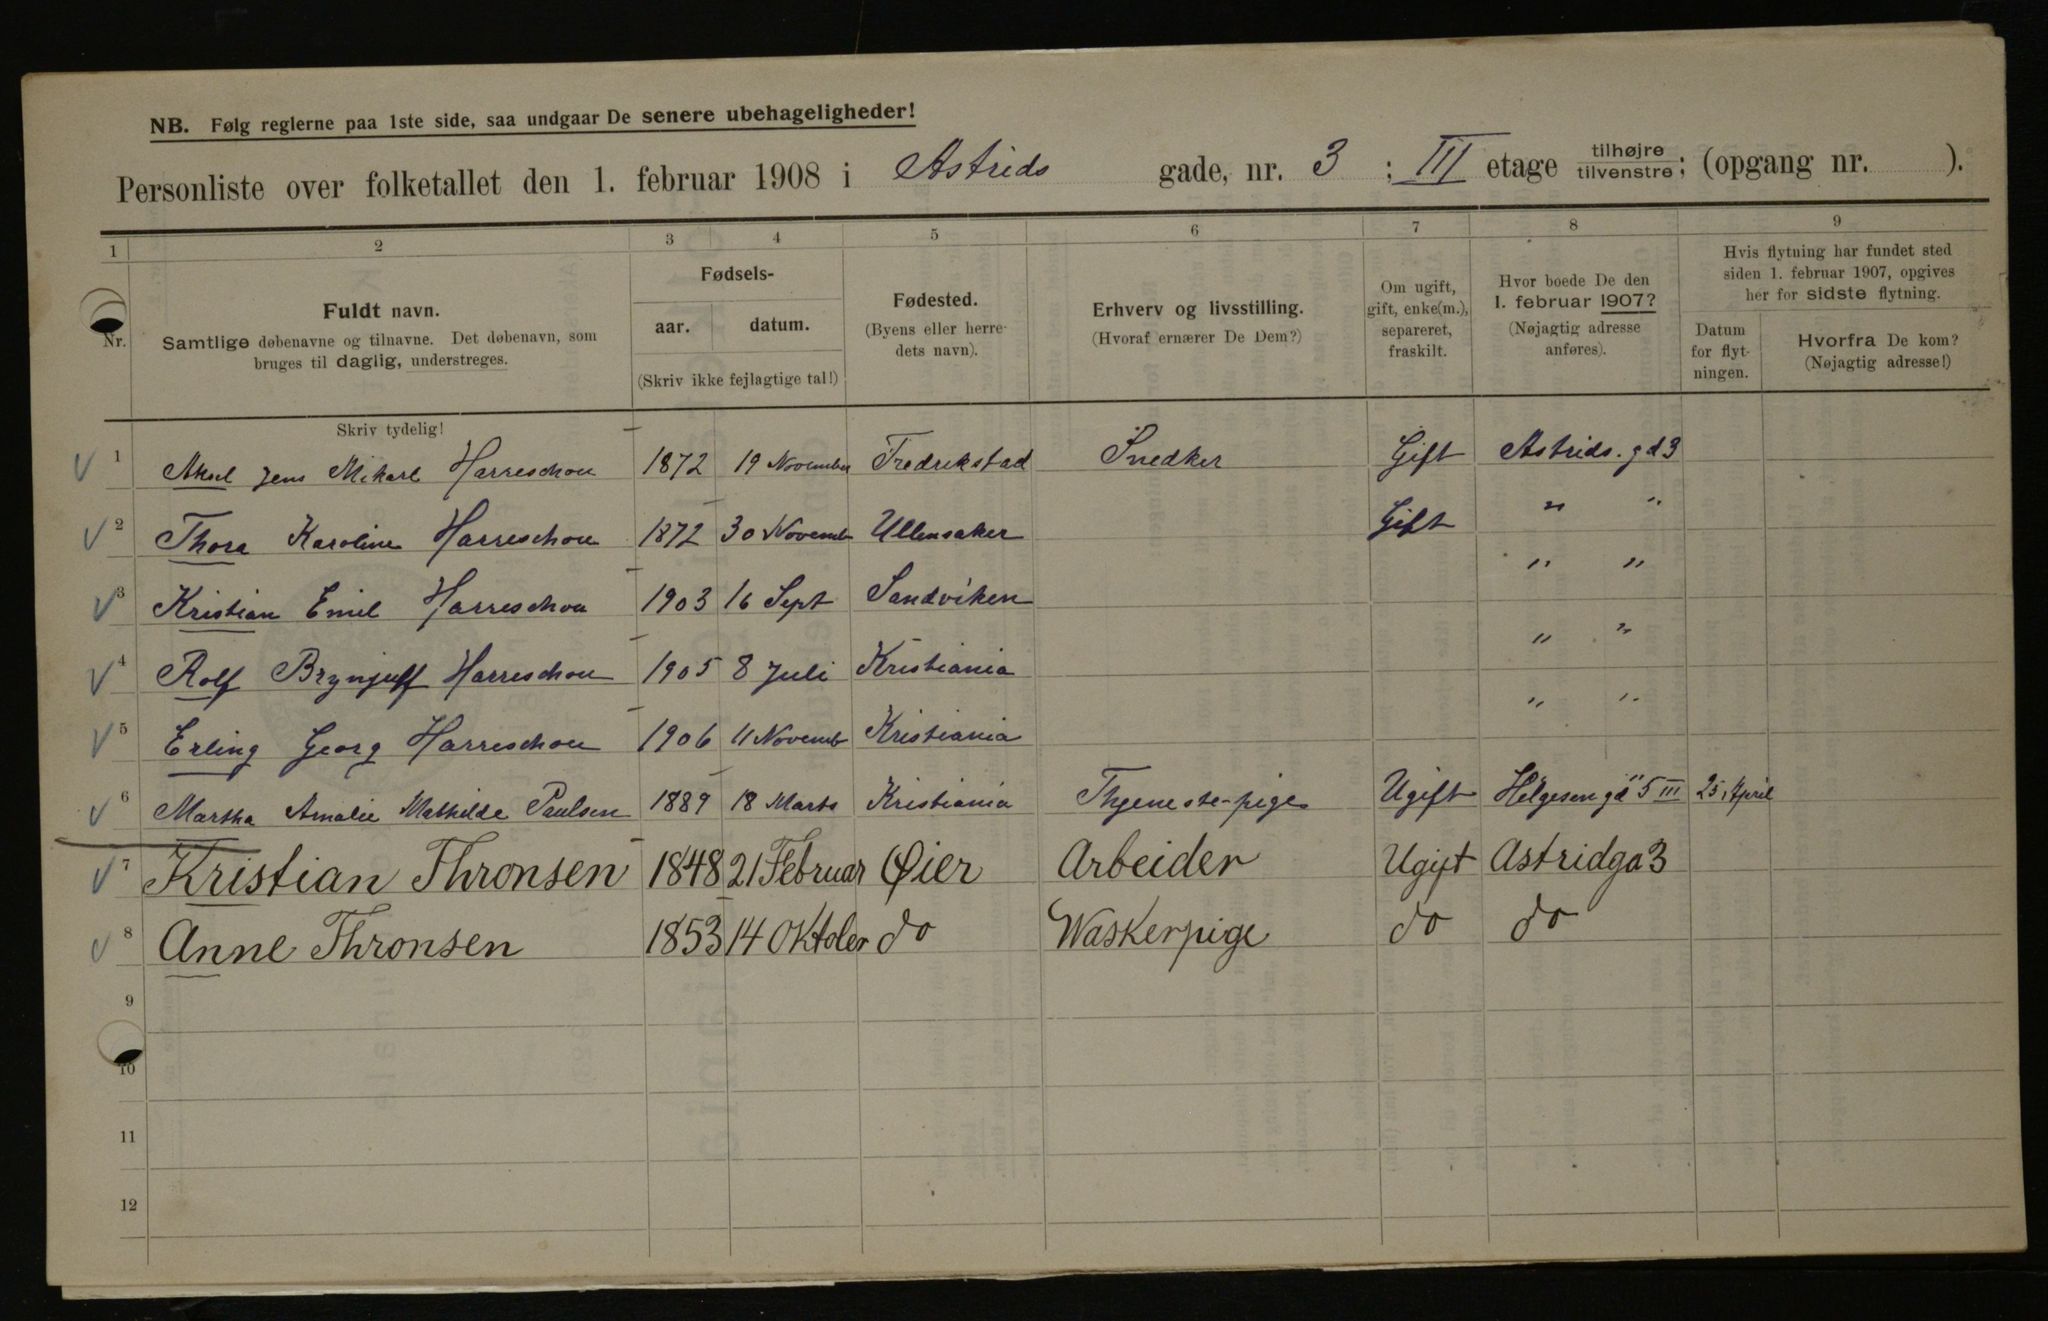 NB. Følg reglerne paa 1ste side, saa undgaar De senere ubehageligheder!
Personliste over folketallet den 1. februar 1908 i Astrids gade, nr. 3 ; III etage tilhøjre tilvenstre; (opgang nr. ).
1 2 3 4 5 6 7 8 9
Nr.
Fuldt navn.
Samtlige døbenavne og tilnavne. Det døbenavn, som
bruges til daglig, understreges.
Fødsels-
aar. datum.
(Skriv ikke fejlagtige tal!)
Fødested.
(Byens eller herre-
dets navn).
Erhverv og livsstilling.
(Hvoraf ernærer De Dem?)
Om ugift,
gift, enke(m.),
separeret,
fraskilt.
Hvor boede De den
1. februar 1907?
(Nøjagtig adresse
anføres).
Hvis flytning har fundet sted
siden 1. februar 1907, opgives
her for sidste flytning.
Datum
for flyt-
ningen.
Hvorfra De kom?
(Nøjagtig adresse!)
Skriv tydelig!
1 Aksel Jens Mikael Harreschou 1872 19 November Fredrikstad Snedker Gift Astrids. gd 3
2 Thora Karoline Harreschou 1872 30 Novemb Ullensaker Gift " "
3 Kristian Emil Harreschou 1903 16 Sept Sandviken " "
4 Rolf Brynjulf Harreschou 1905 8 Juli Kristiania " "
5 Erling Georg Harreschou 1906 11 Novemb Kristiania " "
6 Martha Amalie Mathilde Paulsen 1889 18 Marts Kristiania Thjeneste-pige Ugift Helgesen gd 5 III 25 April
7 Kristian Thronsen 1848 21 Februar Øier Arbeider Ugift Astridga 3
8 Anne Thronsen 1853 14 Oktober do Waskerpige do do
9
10
11
12